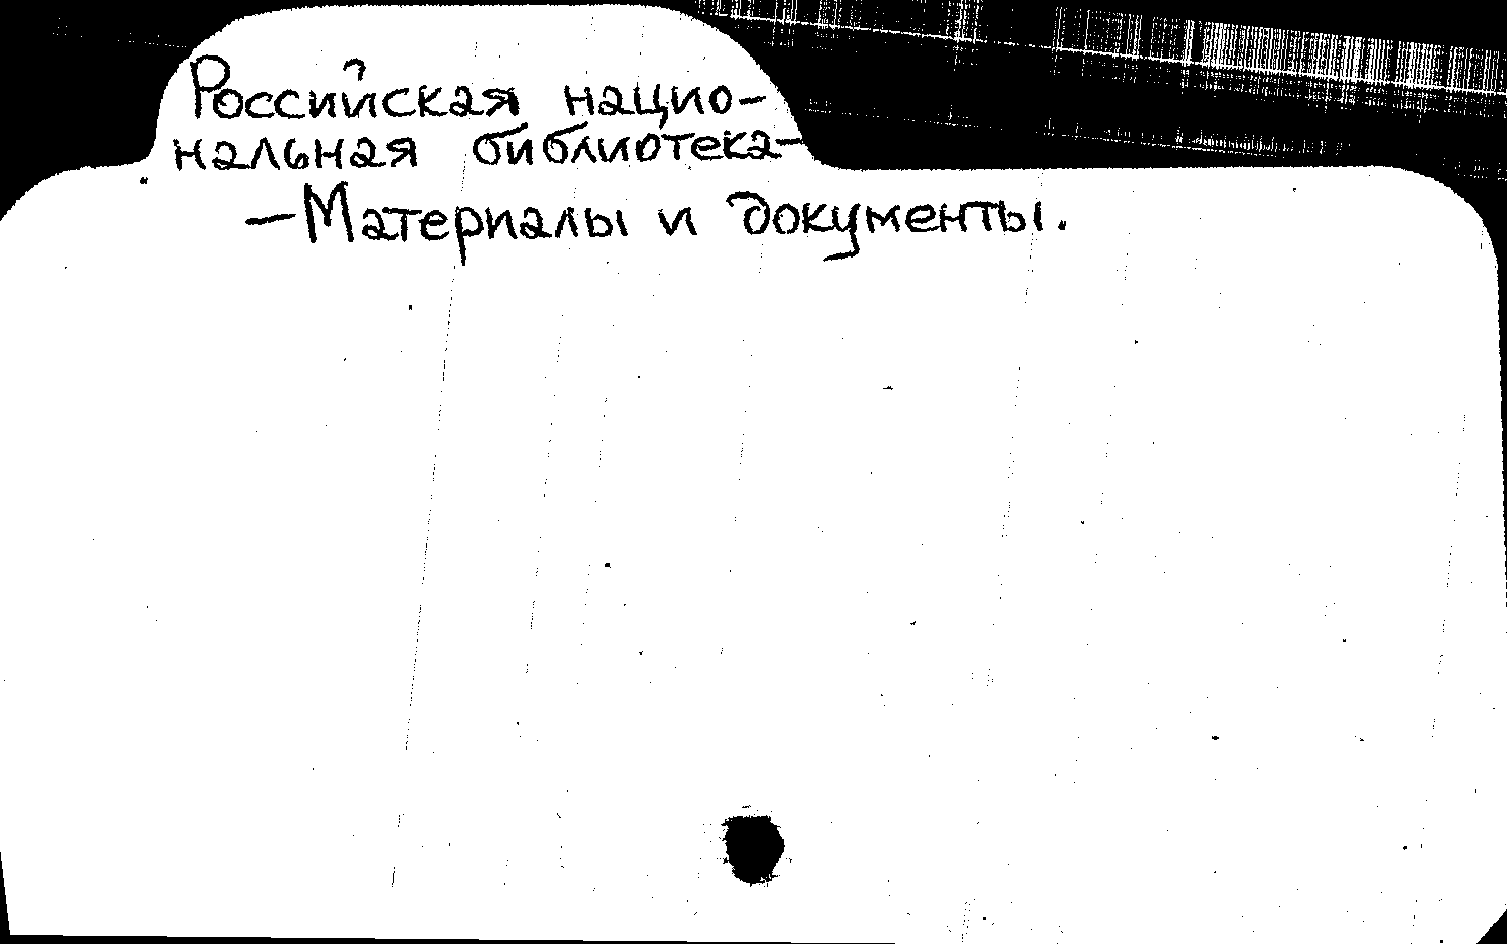 Российская нацио-
нальная библиотека-
-Материалы и документы.